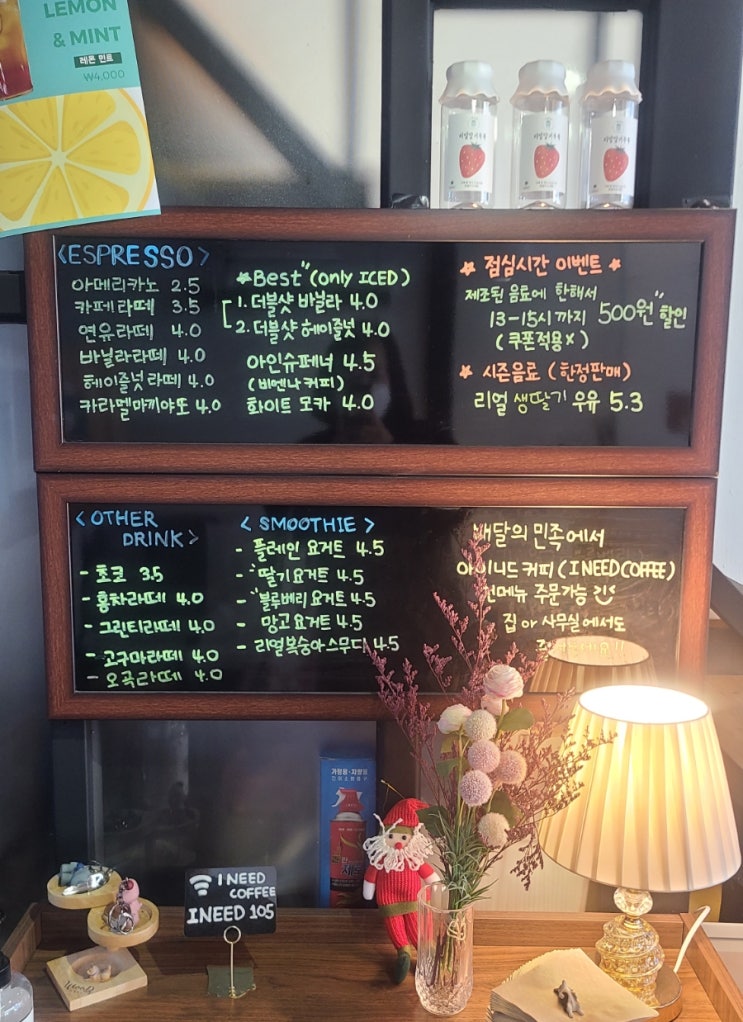 LEMON
& MINT
레몬 민트
₩4,000
<ESPRESSO>
아메리카노 2.5
카페라떼 3.5
연유라떼 4.0
바닐라라떼 4.0
헤이즐넛라떼 4.0
카라멜마끼야또 4.0
*Best" (only ICED)
1. 더블샷 바닐라 4.0
2. 더블샷 헤이즐넛 4.0
아인슈페너 4.5
(비엔나커피)
화이트 모카 4.0
* 점심시간 이벤트 *
제조된 음료에 한해서
13-15시까지 500원" 할인
(쿠폰적용x)
* 시즌음료 (한정판매)
리얼 생딸기 우유 5.3
<OTHER
DRINK>
- 초코 3.5
- 홍차라떼 4.0
- 그린티라떼 4.0
- 고구마라떼 4.0
- 오곡라떼 4.0
< SMOOTHIE >
- 플레인 요거트 4.5
- "딸기요거트 4.5
- "블루베리 요거트 4.5
- 망고요거트 4.5
- 리얼복숭아스무디 4.5
배달의 민족에서
아이니드커피 (I NEED COFFEE)
전메뉴 주문가능
집 아 사무실에서도
가정용·차량용
I NEED
COFFEE
INEED 105